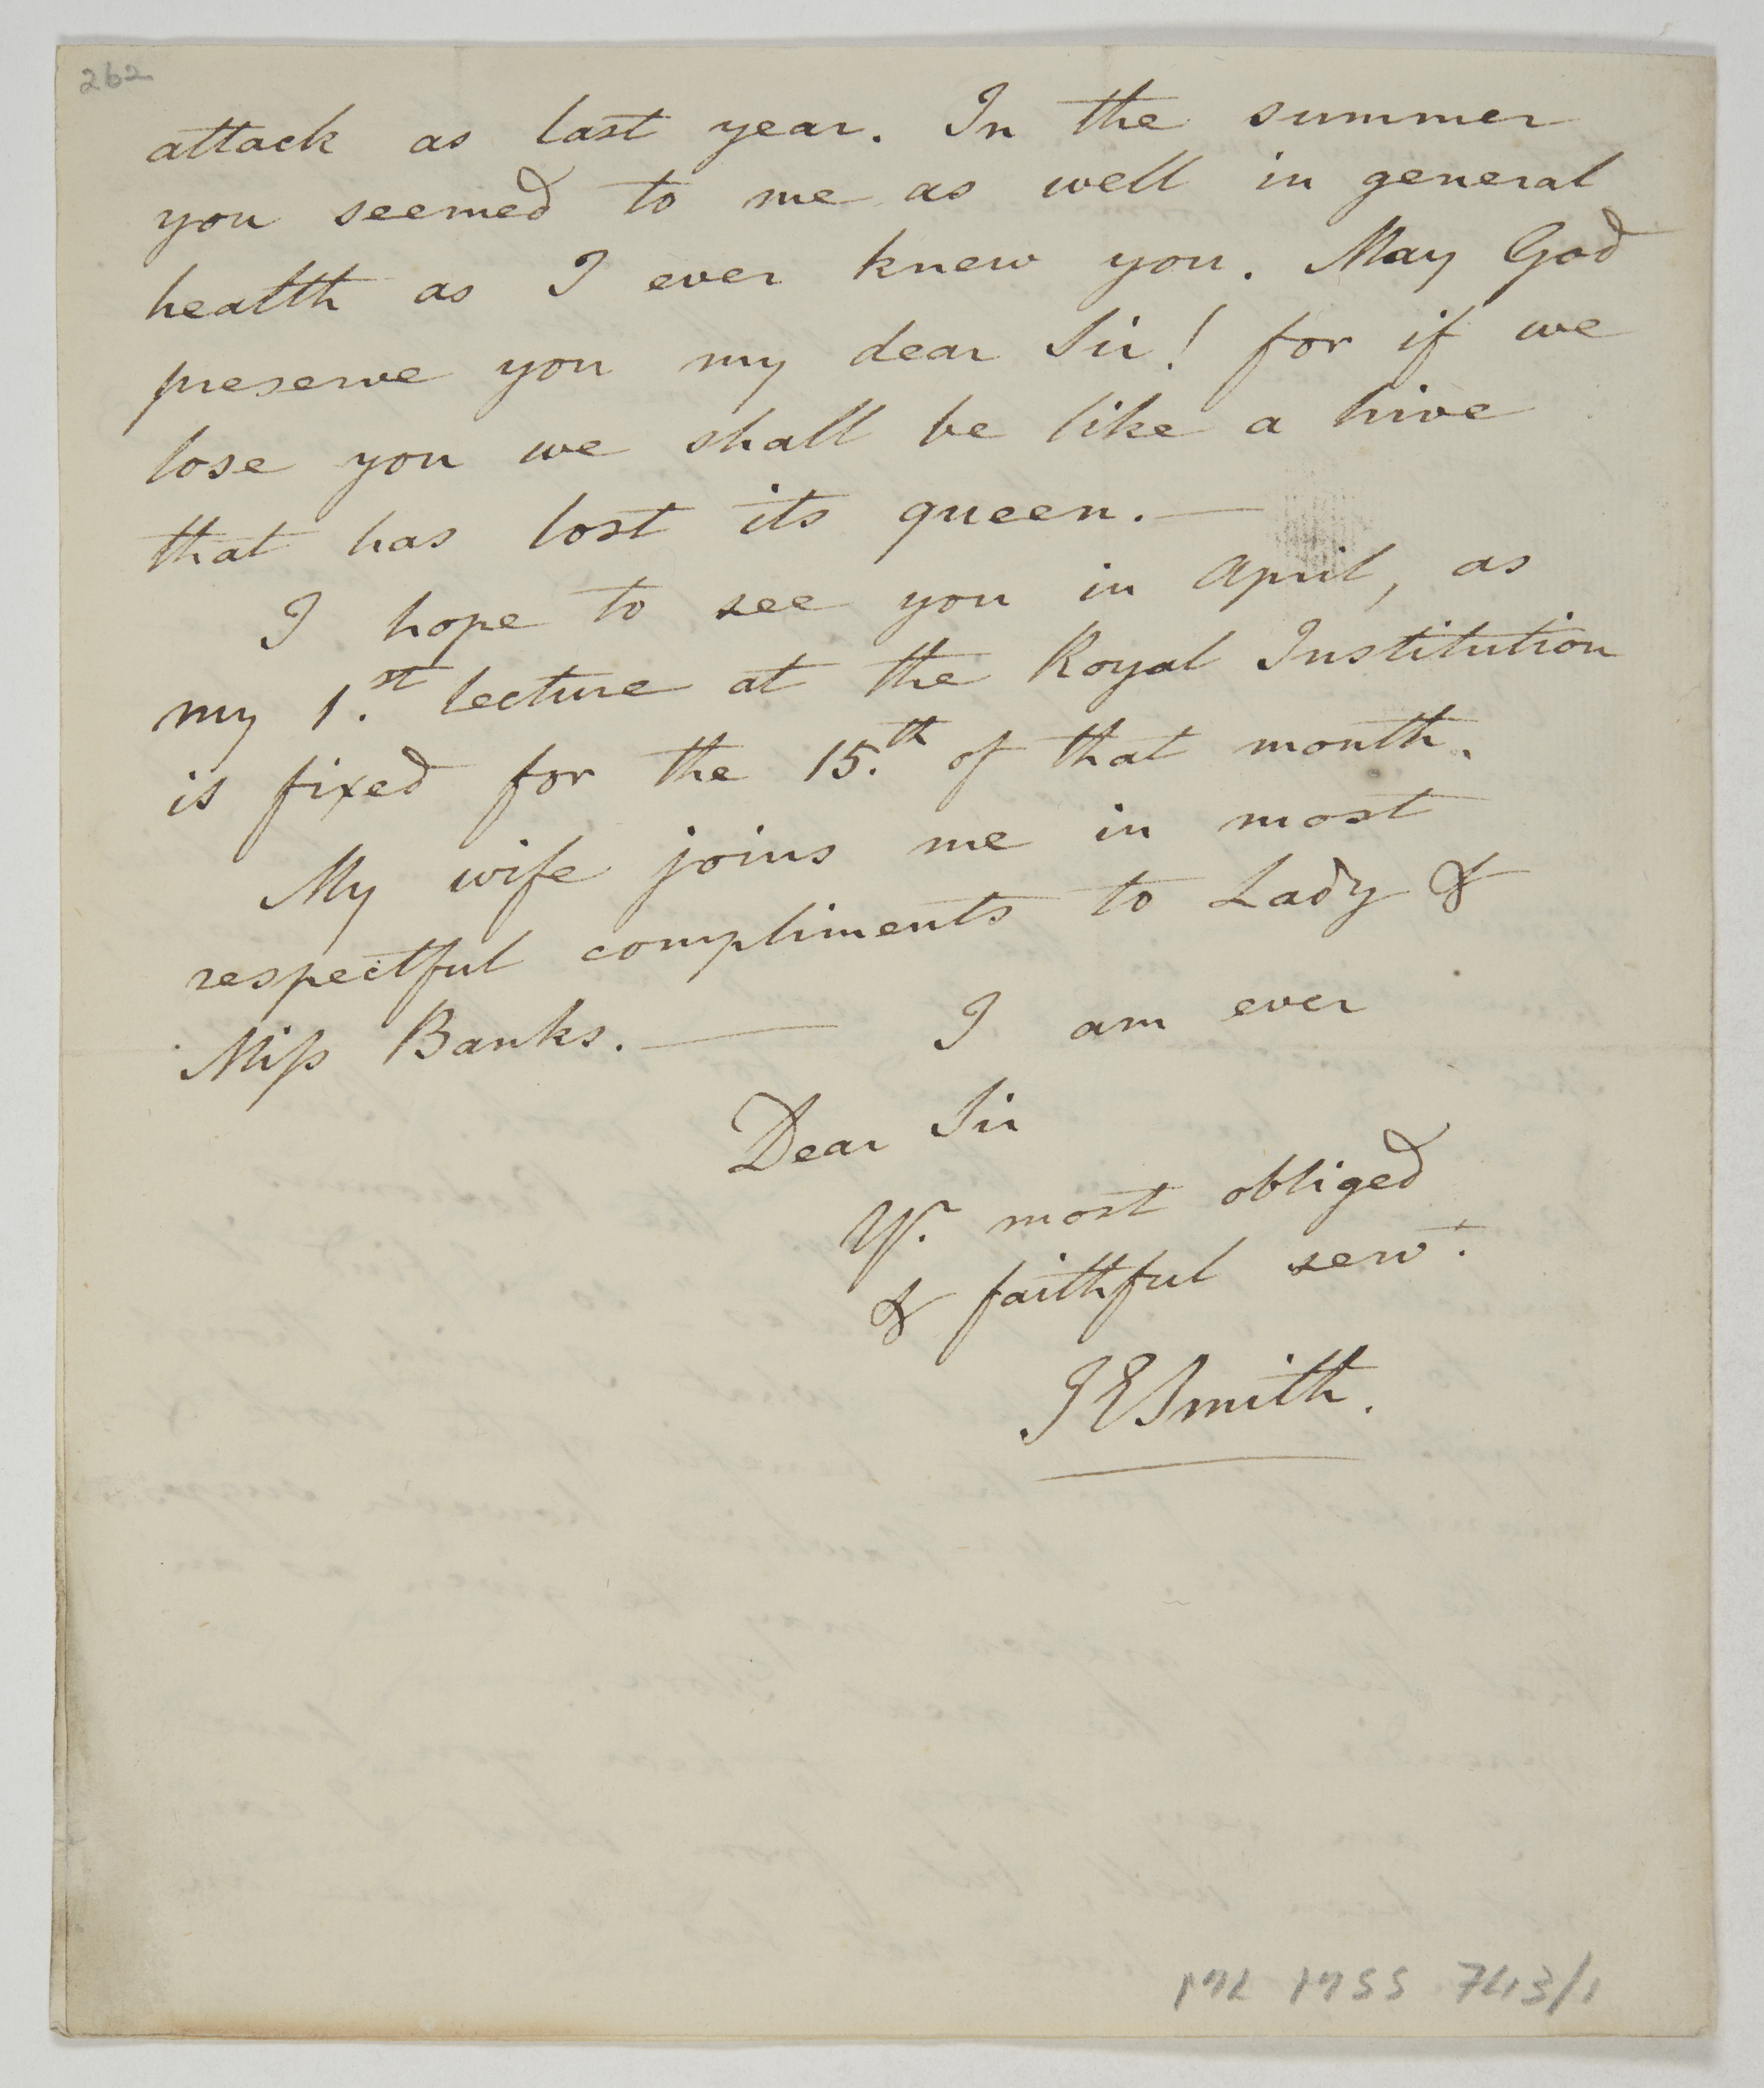 262
attack as last year. In the summer
you seemed to me as well in general
health as I ever knew you. May God
preserve you my dear Sir! for if we
lose you we shall be like a hive
that has lost its queen. —
I hope to see you in April, as
my 1.st lecture at the Royal Institution
is fixed for the 15.th of that month.
My wife joins me in most
respectful compliments to Lady &
Miſs Banks. — I am ever
Dear Sir
Yr. most obliged
& faithful servt.
JESmith.
ML MSS 743/1